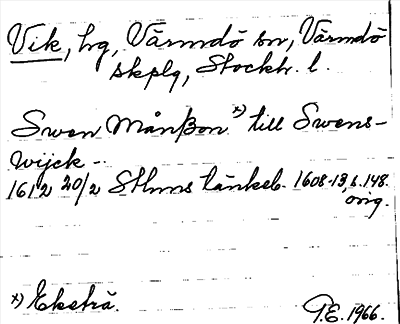 Vik, hg, Värmdö sn, Värmdö
skplg, Stockh. l.
Swen Månßon x) till Swens-
wijck -.
1612 20/2 Sthms tänkeb. 1608-13, s. 148.
orig.
x) Eketrä.
P.E. 1966.